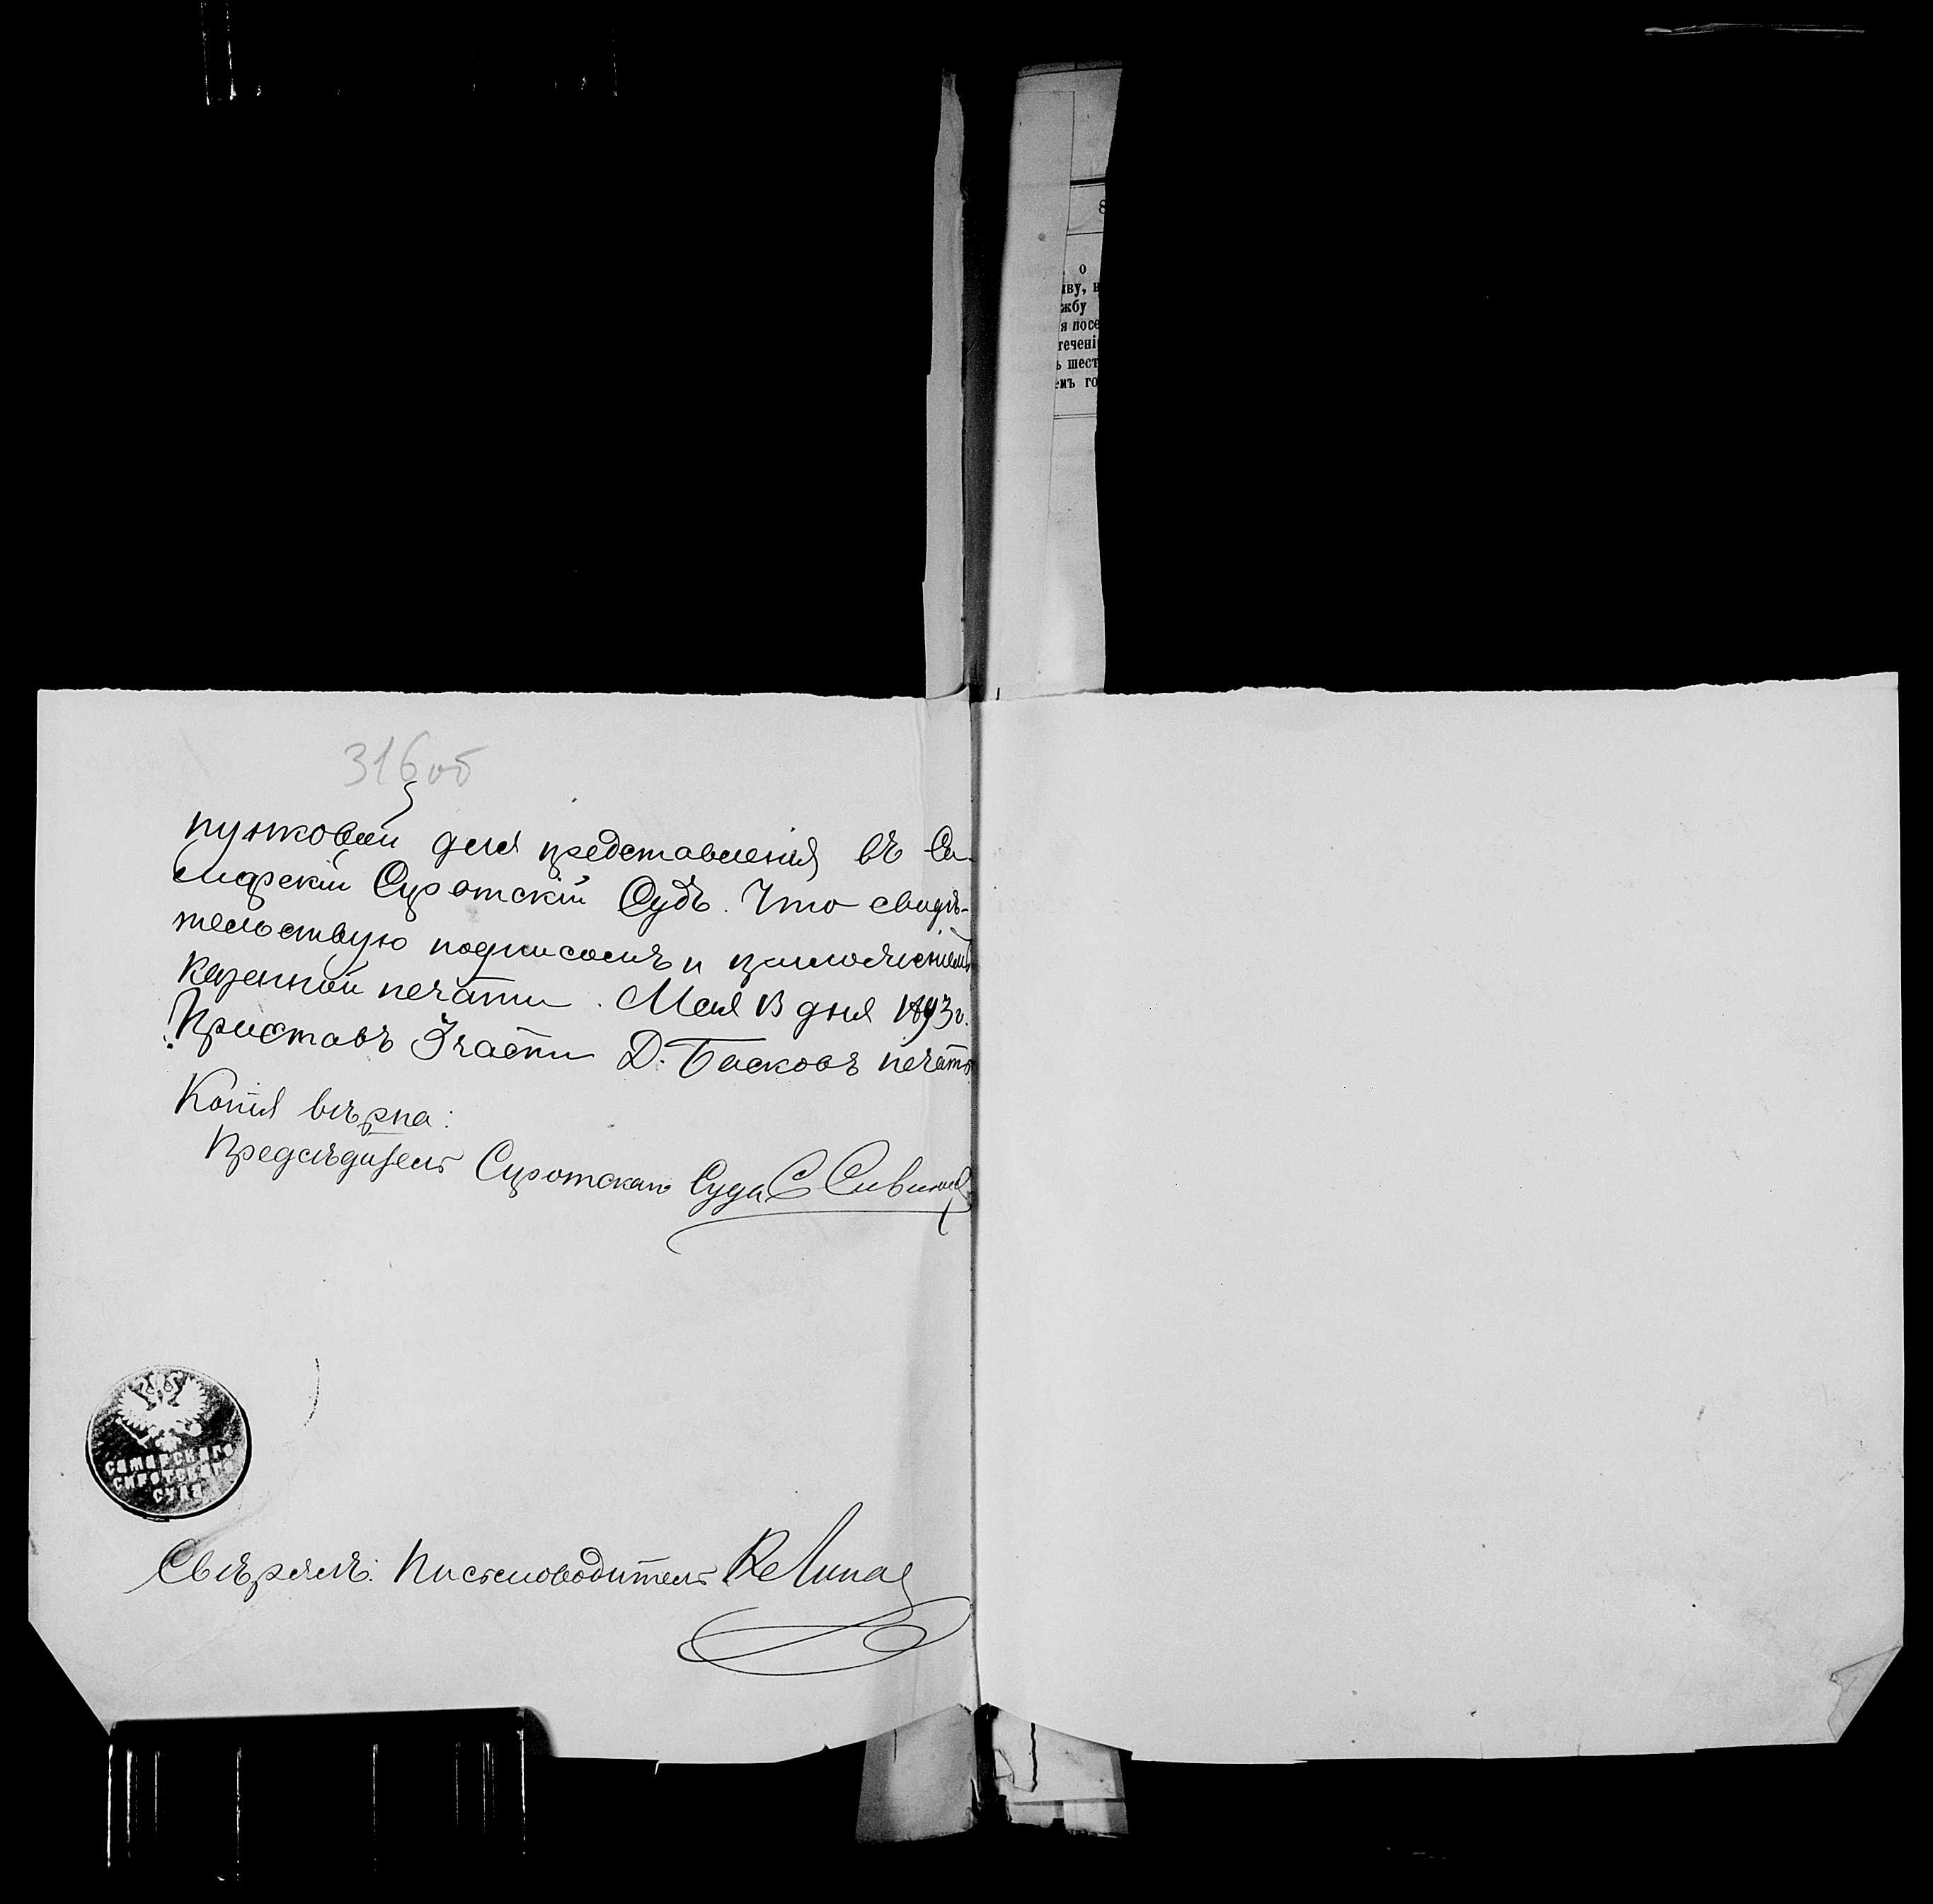 316 об
8
о
иву, н
жбу
я посе
течені
ъ шест
емъ го
для представленія въ Са-
марскій Сиротскій Судъ. Что свидѣ-
тельствую подписомъ и приложеніемъ
казенной печати. Мая 13 дня 1893 г.
Приставъ 3 части Д. Басковъ печать
Копія вѣрна:
Предсѣдатель Сиротскаго Суда С
Самарскаго
Сиротскаго
Суда
Свѣрялъ: Письмоводитель